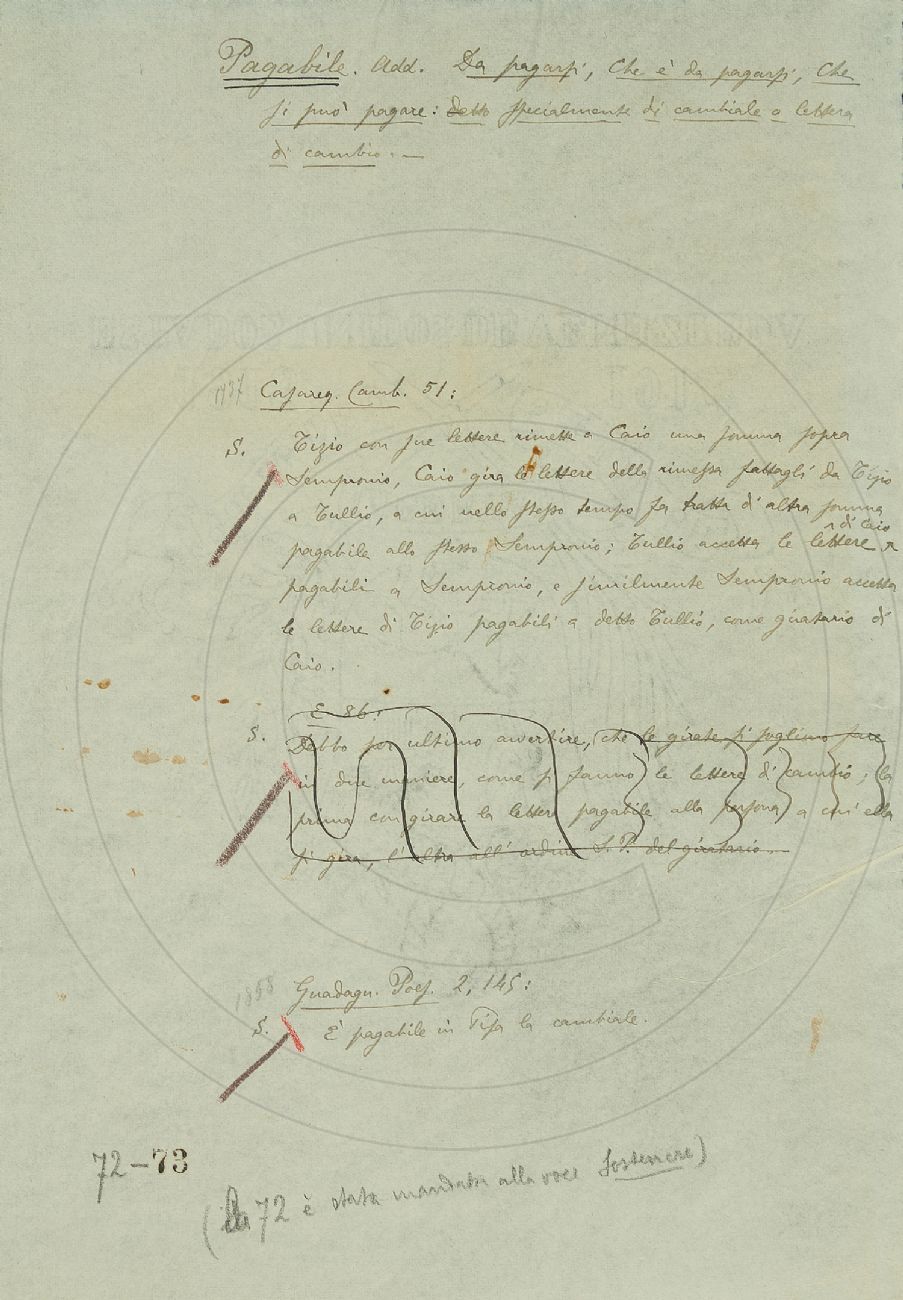 Pagabile. Add. Da pagarsi, Che è da pagarsi, Che
si può pagare: detto specialmente di cambiale o lettera
di cambio. —
1737 Casareg. Camb. 51:
S. Tizio con sue lettere rimette a Caio una somma sopra
Sempronio, Caio gira le lettere della rimessa fattagli da Tizio
a Tullio, a cui nello stesso tempo fa tratta di altra somma
pagabile allo stesso Sempronio; Tullio accetta le lettere di Caio
pagabili a Sempronio, e similmente Sempronio accetta
le lettere di Tizio pagabili a detto Tullio, come giratario di
Caio.
E 86:
S. Debbo per ultimo avvertire, che le girate si sogliono fare
in due maniere, come si fanno le lettere di cambio; la
prima con girare la lettera pagabile alla persona a cui ella
si gira, l'altra all'ordine S. P. del giratario. —
1858 Guadagn. Poes. 2, 145:
S. È pagabile in Pisa la cambiale.
72-73
(la 72 è stata mandata alla voce Sostenere)